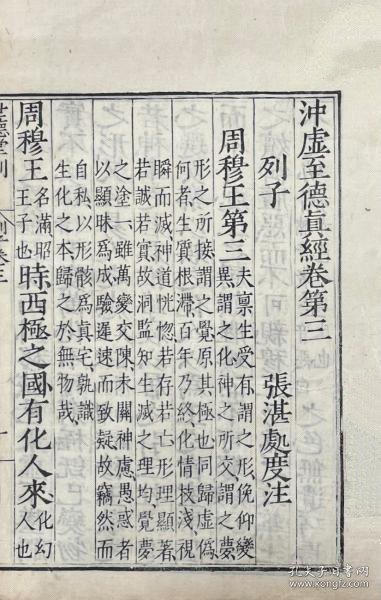 沖虛至德真經卷第三
列子 張湛處度注
周穆王第三
夫稟生受有謂之形俛仰變
異謂之化神之所交謂之夢
形之所接謂之覺原其極也同歸虛僞
何者生質根滯百年乃終化情枝淺視
瞬而滅神道恍惚若存若亡形理顯著
若誠若實故洞監知生滅之理均覺夢
之塗一雖萬變交陳未關神慮愚惑者
以顯昧爲成驗遲速而致疑故竊然而
自私以形骸爲真宅孰識
生化之本歸之於無物哉
周穆王
名滿昭
王子也
時西極之國有化人來
化幻
人也
世德堂刊
孔夫子旧书网